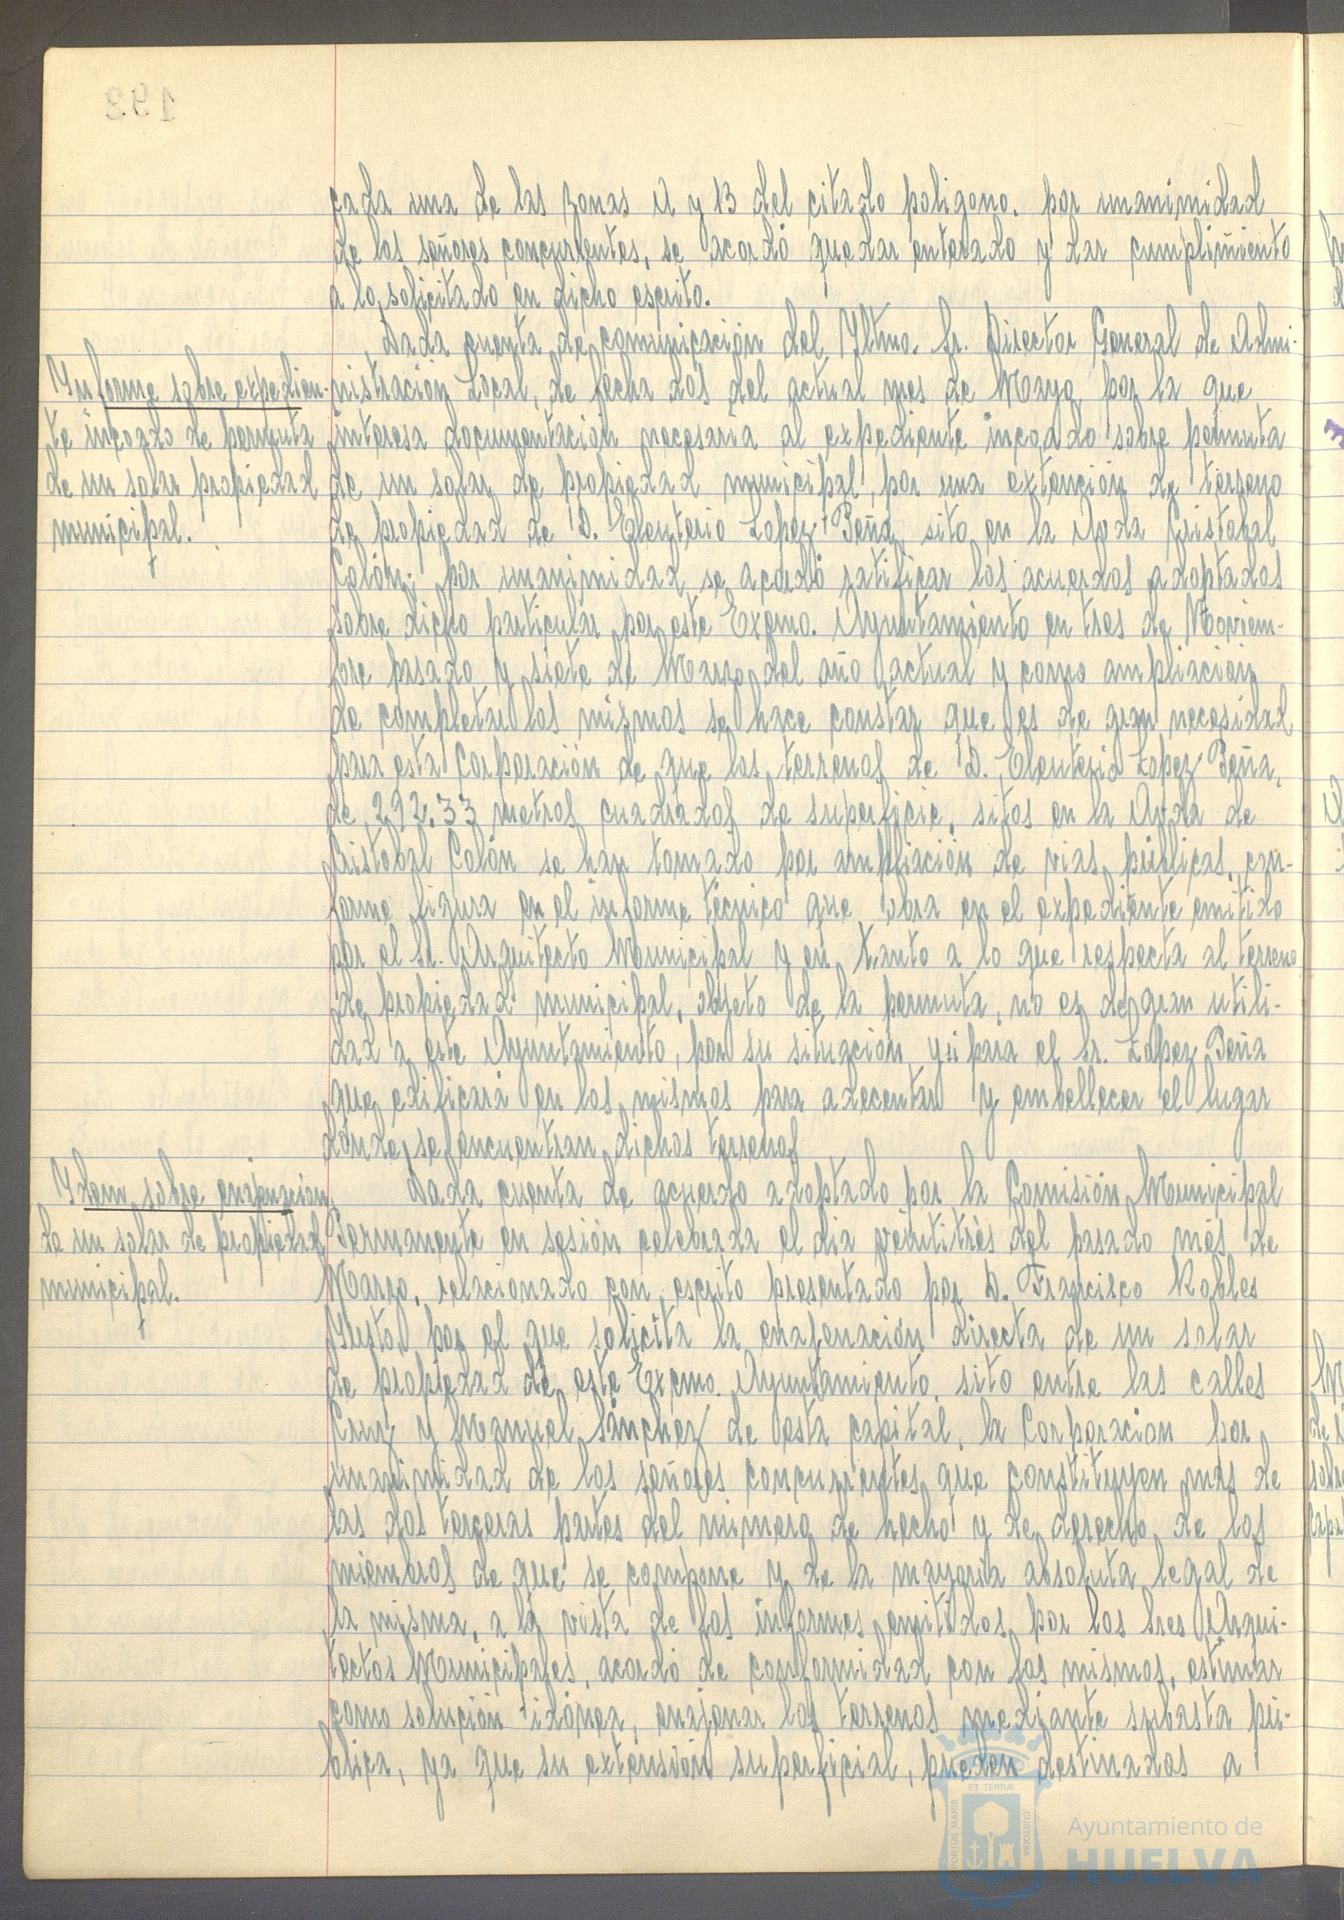 cada una de las zonas 11 y 13 del citado poligono. por unanimidad
de los señores concurrentes, se acordó quedar enterado y dar cumplimiento
a lo solicitado en dicho escrito.
Dada cuenta de comunicación del Yltmo. Sr. Director General de Admi-
Ynforme sobre expedien-
te incoado de permuta
de un solar propiedad
municipal.
nistración Local, de fecha dos del actual mes de Mayo por la que
interesa documentación necesaria al expediente incoado sobre permuta
de un solar de propiedad municipal, por una extención de terreno
de propiedad de D. Eleuterio Lopez Peña, sito en la Avda Cristobal
Colón; por unanimidad se acordó ratificar los acuerdos adoptados
sobre dicho particular por este Excmo. Ayuntamiento en tres de Noviem-
bre pasado y siete de Marzo del año actual y como ampliación
de completar los mismos se hace constar que es de gran necesidad
para esta Corporación de que los terrenos de D. Eleuterio Lopez Peña,
de 292,33 metros cuadrados de superficie, sitos en la Avda de
Cristobal Colón se han tomado por ampliación de vias públicas, con-
forme figura en el informe técnico que obra en el expediente emitido
por el Sr. Arquitecto Municipal y en tanto a lo que respecta al terreno
de propiedad municipal, objeto de la permuta, no es de gran utili-
dad a este Ayuntamiento, por su situación y si para el Sr. Lopez Peña
que edificará en los mismos para adecentar y embellecer el lugar
dónde se encuentran dichos terrenos
Ydem sobre enajenacion
de un solar de propiedad
municipal.
Dada cuenta de acuerdo adoptado por la Comisión Municipal
Permanente en sesión celebrada el dia veintitrés del pasado més de
Marzo, relacionado con escrito presentado por D. Francisco Robles
Yusto, por el que solicita la enajenación directa de un solar
de propiedad de este Excmo. Ayuntamiento, sito entre las calles
Cruz y Manuel Sánchez de esta capital, la Corporacion por
unanimidad de los señores concurrentes que constituyen mas de
las dos terceras partes del número de hecho y de derecho de los
miembros de que se compone y de la mayoria absoluta legal de
la misma, a la vista de los informes emitidos por los Sres Arqui-
tectos Municipales, acordó de conformidad con los mismos, estimar
como solución idónea, enajenar los terrenos mediante subasta pú-
blica, ya que su extensión superficial, pueden destinados a
PORTUS MARIS
ET TERRÆ
CUSTODIA
Ayuntamiento de
HUELVA